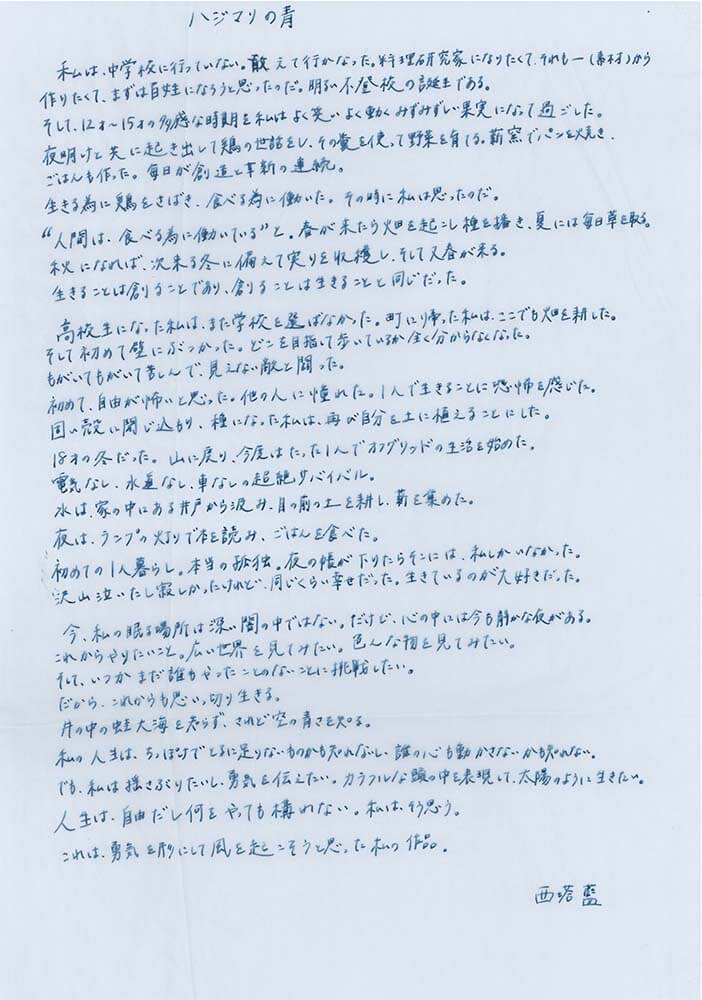 ハジマリの青
私は、中学校に行っていない。敢えて行かなかった。料理研究家になりたくて、それも一(素材)から
作りたくて、まずは百姓になろうと思ったのだ。明るい不登校の誕生である。
そして、12才〜15才の多感な時期を私はよく笑いよく動くみずみずしい果実になって過ごした。
夜明けと共に起き出して鶏の世話をし、その糞を使って野菜を育てる。薪窯でパンを焼き、
ごはんも作った。毎日が創造と革新の連続。
生きる為に鶏をさばき、食べる為に働いた。その時に私は思ったのだ。
“人間は、食べる為に働いている”と。春が来たら畑を起こし種を播き、夏には毎日草を取る。
秋になれば、次来る冬に備えて実りを収穫し、そして又春が来る。
生きることは創ることであり、創ることは生きることと同じだった。
高校生になった私は、また学校を選ばなかった。町に帰った私は、ここでも畑を耕した。
そして初めて壁にぶつかった。どこを目指して歩いているか全く分からなくなった。
もがいてもがいて苦しんで、見えない敵と闘った。
初めて、自由が怖いと思った。他の人に憧れた。1人で生きることに恐怖を感じた。
固い殻に閉じ込もり、種になった私は、再び自分を土に植えることにした。
18才の冬だった。山に戻り、今度はたった1人でオフグリッドの生活を始めた。
電気なし、水道なし、車なしの超絶サバイバル。
水は、家の中にある井戸から汲み、目の前の土を耕し、薪を集めた。
夜は、ランプの灯りで本を読み、ごはんを食べた。
初めての1人暮らし。本当の孤独。夜の帳が下りたらそこには、私しかいなかった。
沢山泣いたし寂しかったけれど、同じくらい幸せだった。生きているのが大好きだった。
今、私の眠る場所は深い闇の中ではない。だけど、心の中には今も静かな夜がある。
これからやりたいこと。広い世界を見てみたい。色んな物を見てみたい。
そして、いつかまだ誰もやったことのないことに挑戦したい。
だから、これからも思い切り生きる。
井の中の蛙大海を知らず、されど空の青さを知る。
私の人生は、ちっぽけでとるに足りないものかも知れないし、誰の心も動かさないかも知れない。
でも、私は揺さぶりたいし、勇気を伝えたい。カラフルな頭の中を表現して、太陽のように生きたい。
人生は、自由だし何をやっても構れない。私は、そう思う。
これは、勇気を形にして風を起こそうと思った私の作品。
西塔藍